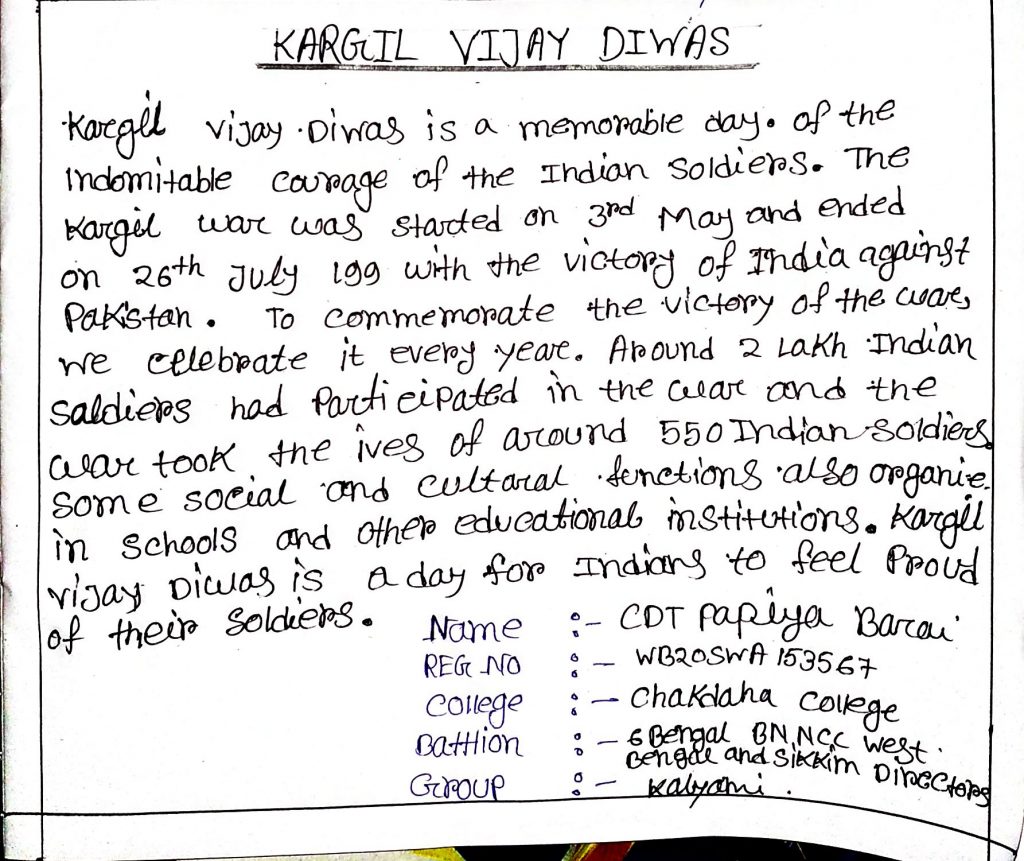 KARGIL VIJAY DIWAS
Kargil Vijay Diwas is a memorable day. of the
Indomitable courage of the Indian Soldiers. The
Kargil war was started on 3rd May and ended
on 26th July 199 with the victory of India against
Pakistan. To commemorate the victory of the war,
we celebrate it every year. Around 2 Lakh Indian
Saldiers had Participated in the war and the
war took the ives of around 550 Indian Soldiers.
Some social and cultaral functions also organie.
in schools and other educational institutions. Kargil
Vijay Diwas is a day for Indians to feel Proud
of their Soldiers.
Name :- CDT Papiya Barai
REG NO :- WB20SWA153567
College :- Chakdaha College
Battlion :- 6 Bengal BN NCC West
Bengal and Sikkim Directors
Group :- Kalyani.